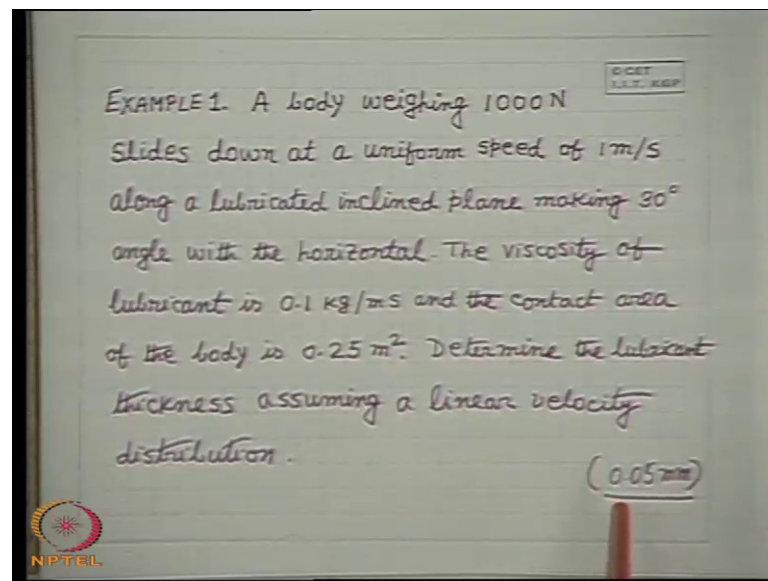 © CET
I.I.T. KGP
EXAMPLE 1. A body weighing 1000 N
slides down at a uniform speed of 1 m/s
along a lubricated inclined plane making 30°
angle with the horizontal. The viscosity of
lubricant is 0.1 kg/ms and the contact area
of the body is 0.25 m². Determine the lubricant
thickness assuming a linear velocity
distribution.
(0.05 mm)
NPTEL